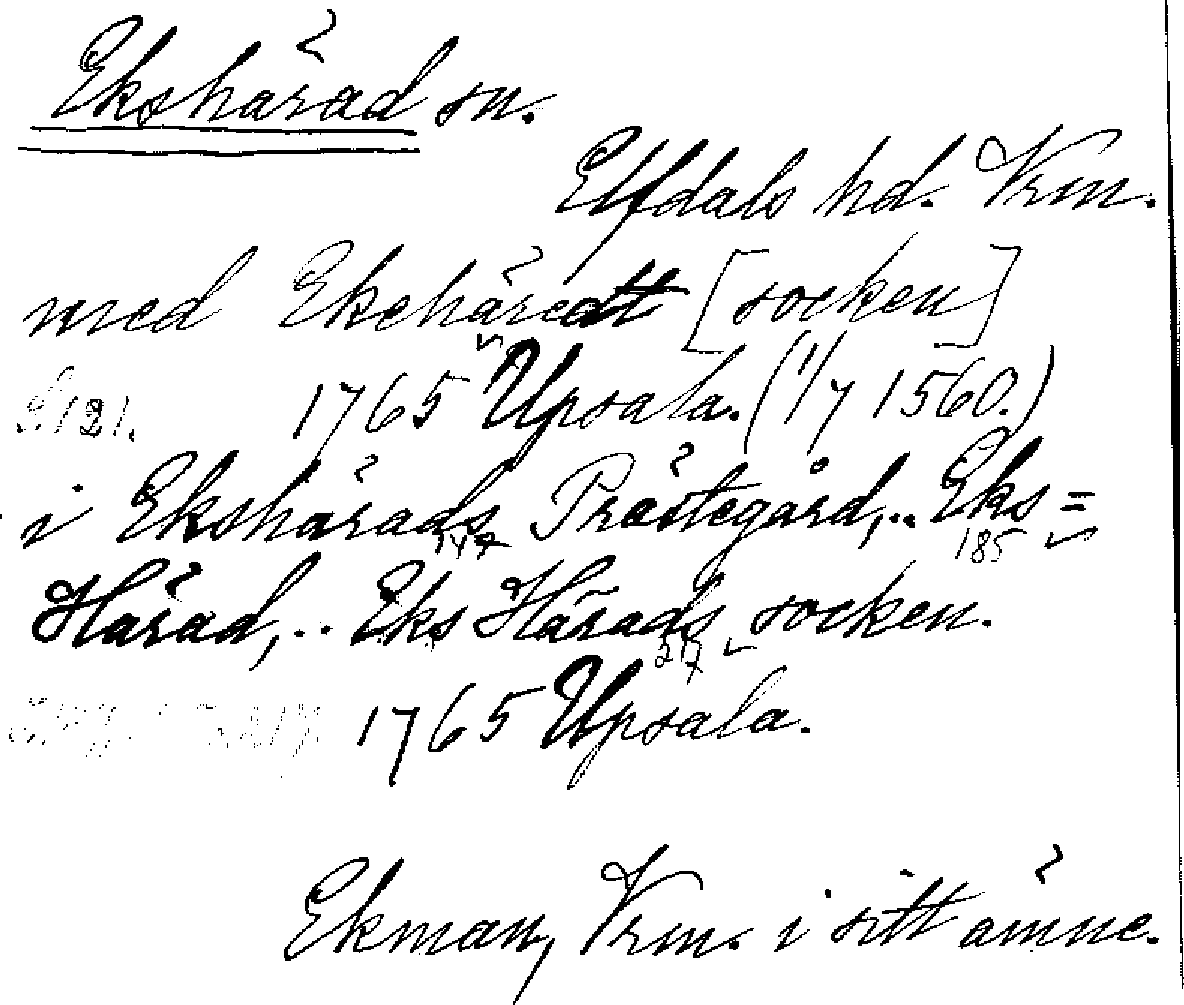 Ekshärad sn.
Elfdals hd. Vrm.
med Ekehäredt [socken]
S. 121. 1765 Upsala. (1/7 1560.)
i Ekshärads Prästegård,.. Eks=
147 185
Härad,.. Eks Härads socken.
217
1765 Upsala.
Ekman, Vrm. i sitt ämne.